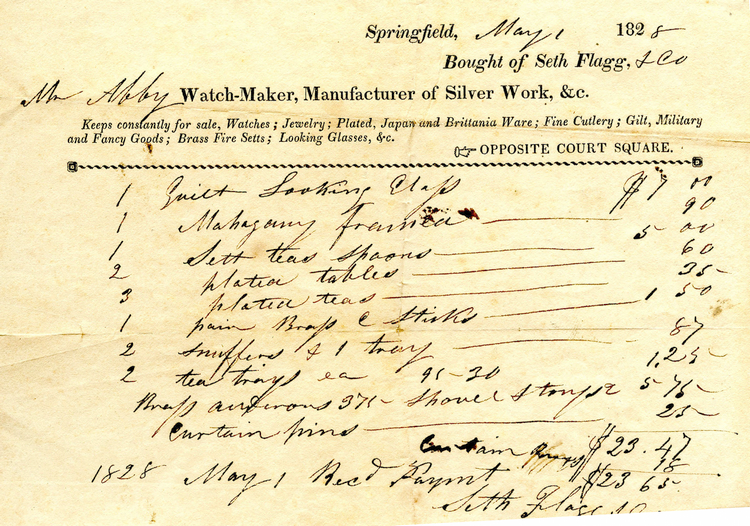 Springfield, May 1 1828
Bought of Seth Flagg, & Co
Mr Abby Watch-Maker, Manufacturer of Silver Work, &c.
Keeps constantly for sale, Watches; Jewelry; Plated, Japan and Brittania Ware; Fine Cutlery; Gilt, Military
and Fancy Goods; Brass Fire Setts; Looking Glasses, &c.
OPPOSITE COURT SQUARE.
1 Guilt Looking Glass $7 00
1 Mahogany framed 90
1 Sett teas spoons 5 00
2 plated tables 60
3 plated teas 35
1 pair Brass C Sticks 1 50
2 snuffers & 1 tray 87
2 tea trays ea 95-30 1,25
Brass andirons 375 Shovel & tongs 2 5 75
Curtain pins 25
$23.47
Curtain 18
1828 May 1 Recd Paymt $23 65
Seth Flagg